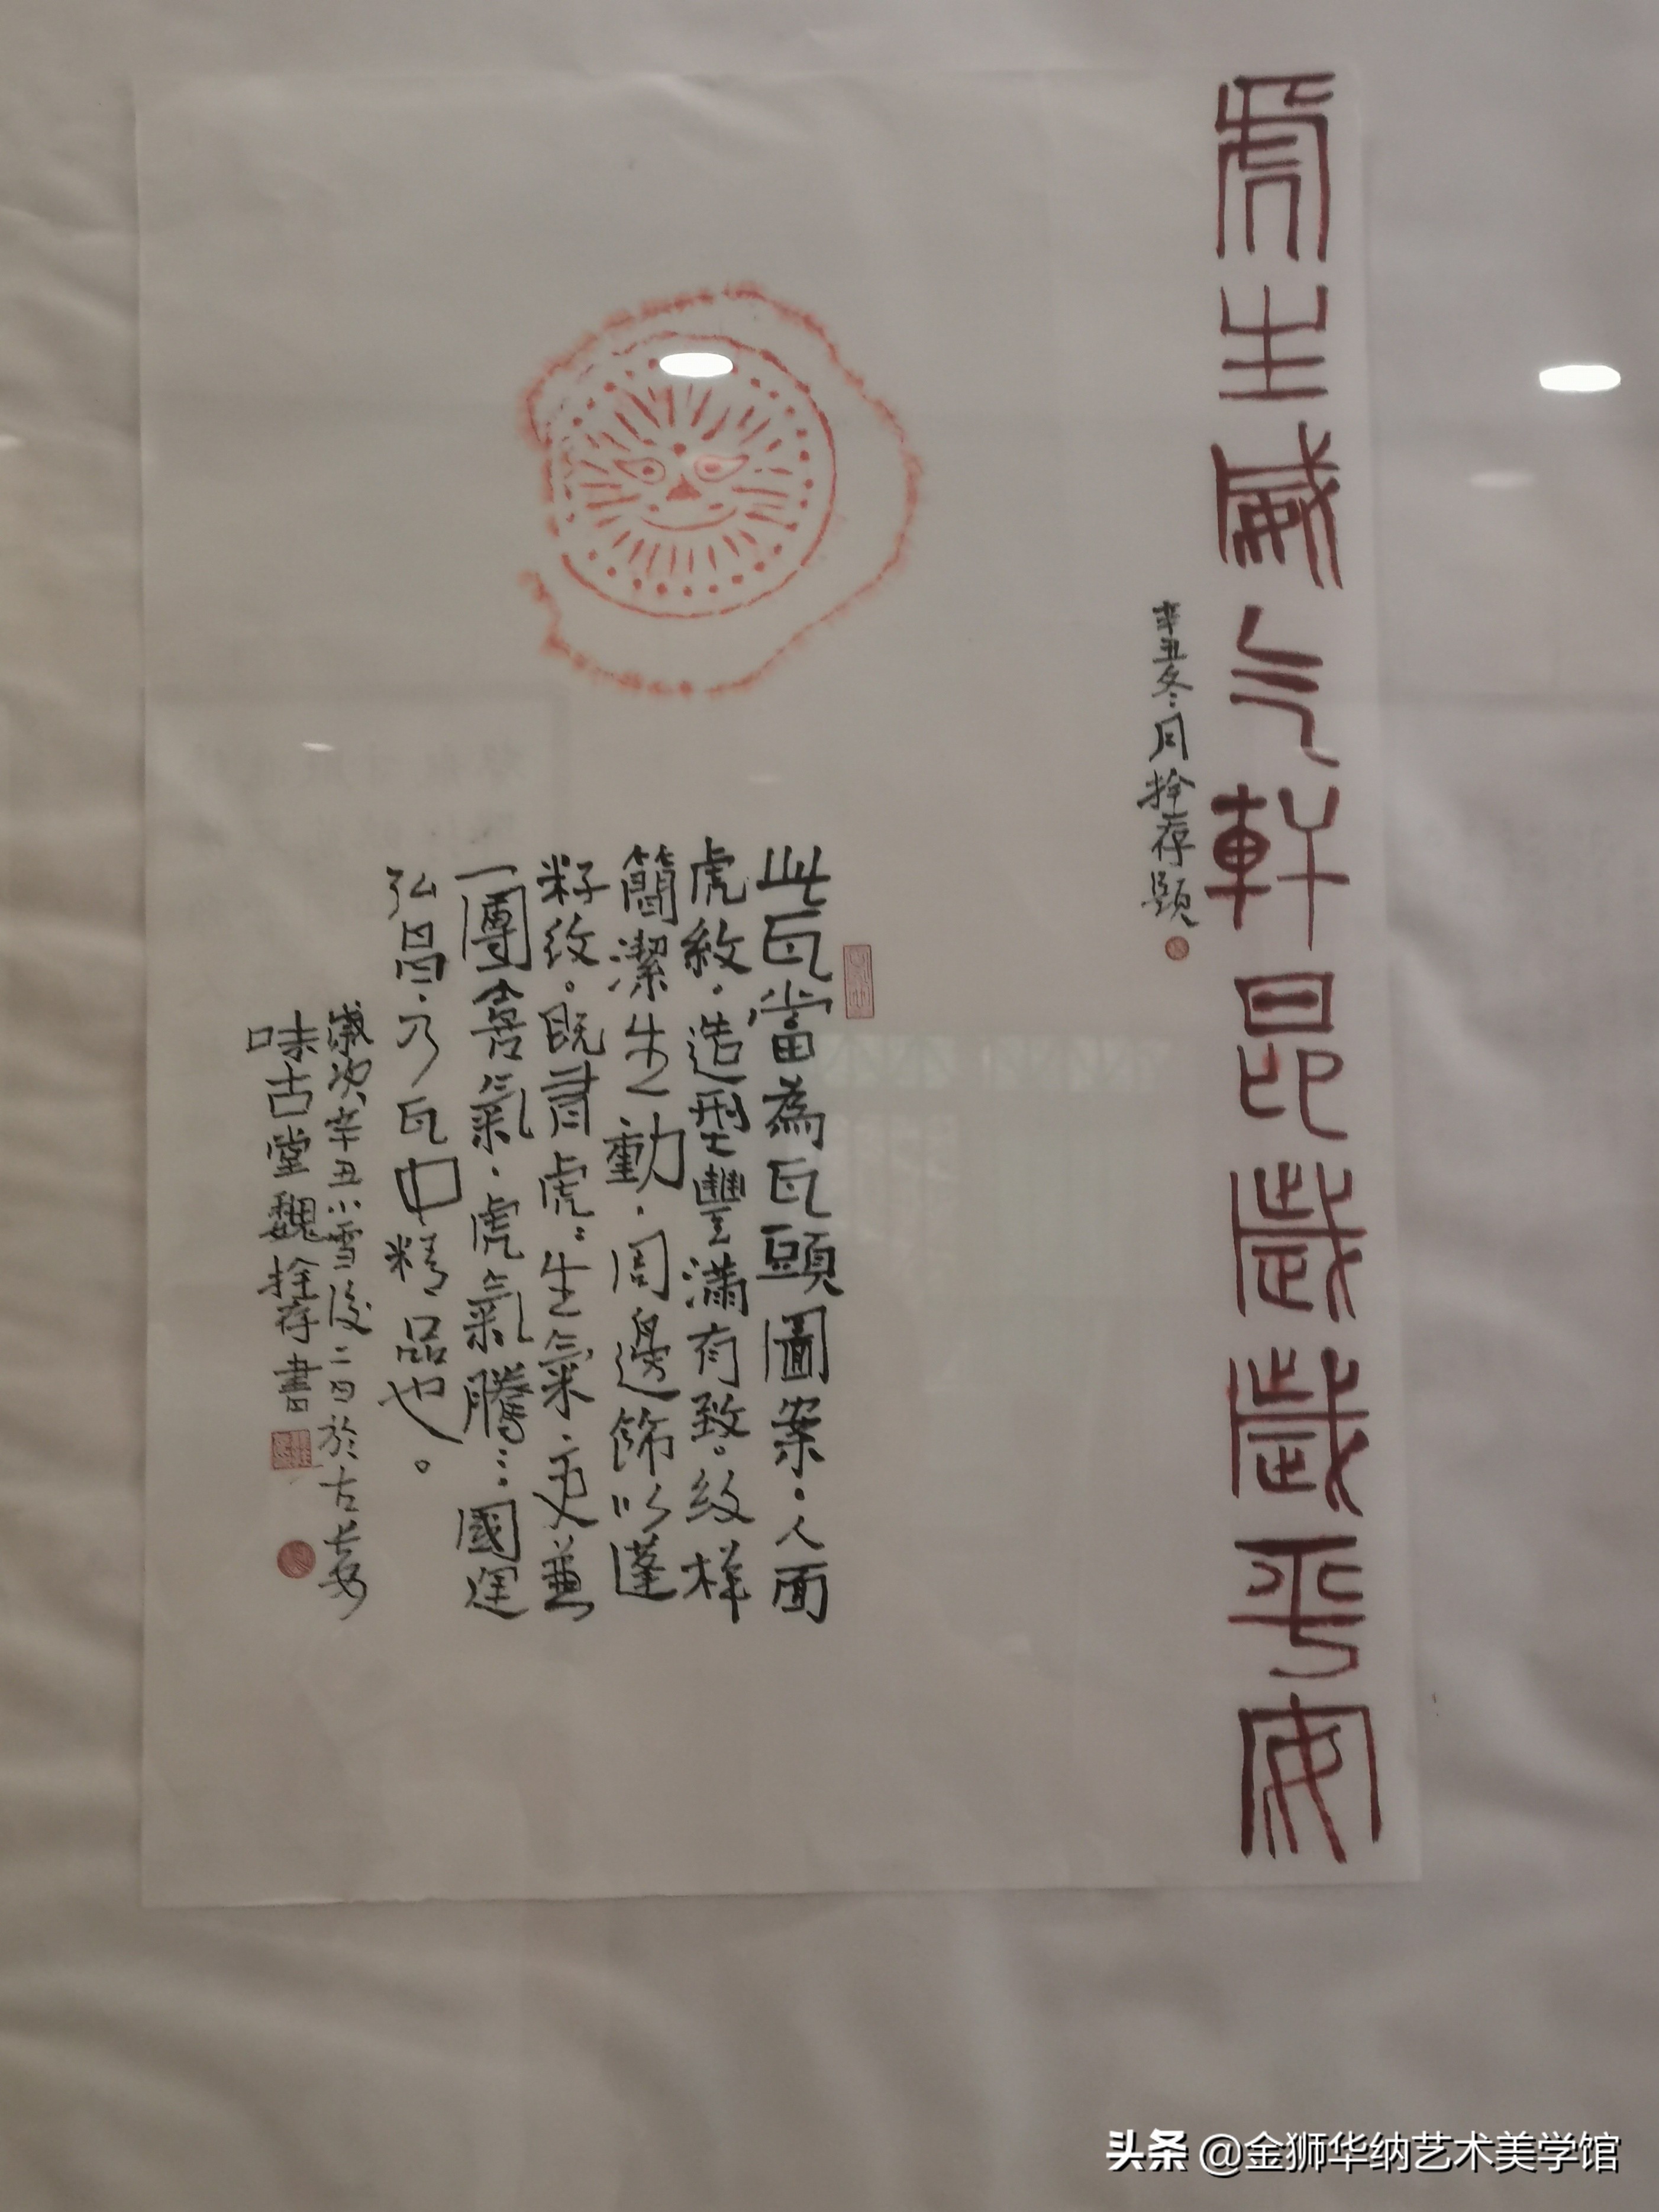 虎生威气軒昂歲歲平安
辛丑冬月拴存題
此瓦當為瓦頭圖案，人面
虎紋，造型豐滿有致。紋样
簡潔生動，周邊飾以蓮
籽纹。既有虎〻生氣，更兼
一團喜氣，虎氣騰〻，國運
弘昌，乃瓦中精品也。
歲次辛丑小雪後二日於古長安
味古堂魏拴存書
头条 @金狮华纳艺术美学馆